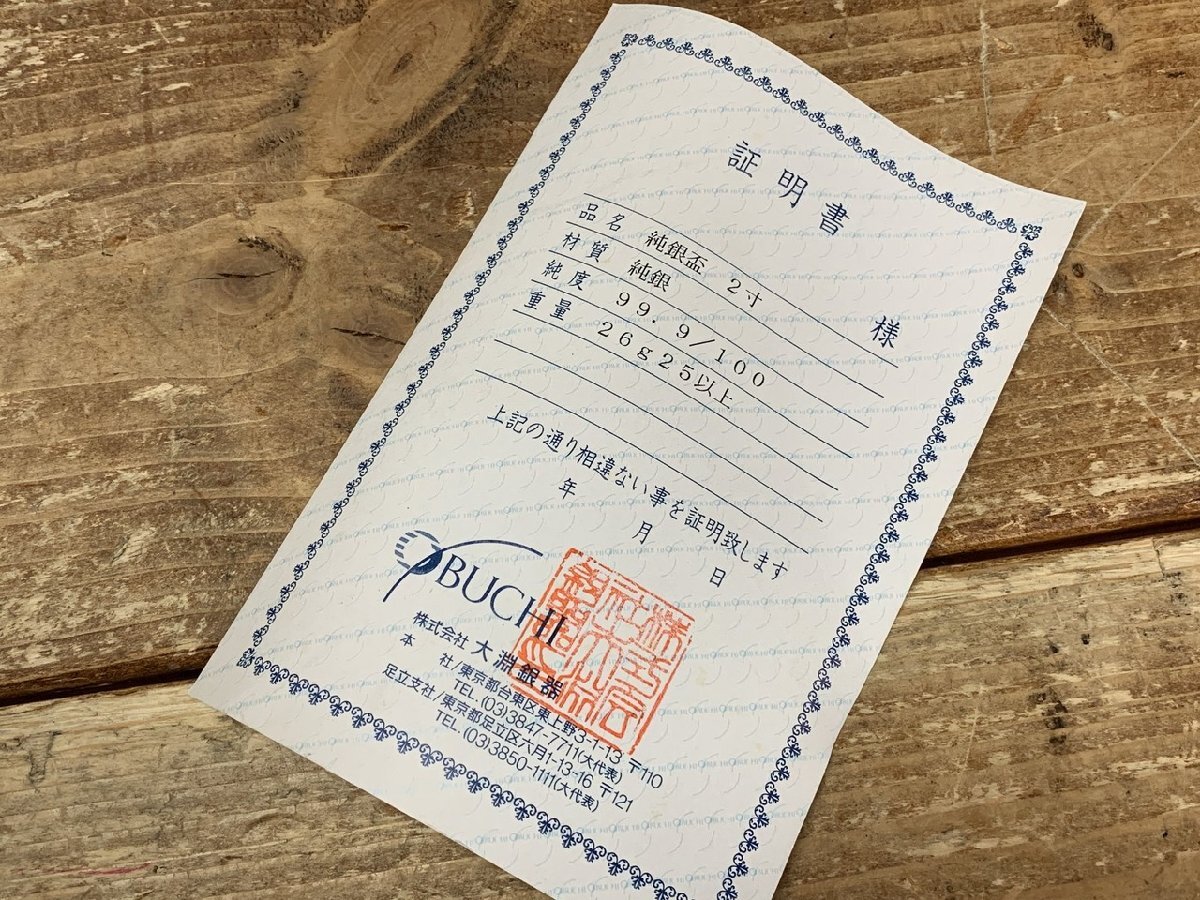 証明書
様
品名 純銀盃 2寸
材質 純銀
純度 99.9/100
重量 26g25以上
上記の通り相違ない事を証明致します
年 月 日
OBUCHI
株式会社 大淵銀器
本 社/東京都台東区東上野3-1-13 〒110
TEL.(03)3847-7711(大代表)
足立支社/東京都足立区六月1-13-16 〒121
TEL.(03)3850-1111(大代表)